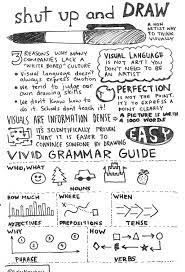 shut up and DRAW
A NON
ARTIST WAY
TO THINK
VISUALLY
3 REASONS WHY MANY
COMPANIES LACK A
"WRITE BOARD" CULTURE
Visual language doesn't
always express emotion
We tend to judge our
own drawing skills
We don't know how to
do it. Schools don't teach it!
VISUAL LANGUAGE
IS NOT ART! YOU
DON'T NEED TO BE
AN ARTIST
PERFECTION
IS NOT THE POINT.
IT'S TO EXPRESS A
POINT CLEARLY
VISUALS ARE INFORMATION DENSE
A PICTURE IS WORTH
1000 WORDS
IT'S SCIENTIFICALLY PROVEN
THAT IT IS EASIER TO
CONVINCE SOMEONE BY DRAWING
EASY
VIVID GRAMMAR GUIDE
WHO, WHAT
NOUNS
HOW MUCH
ADJECTIVES
WHERE
PREPOSITIONS
WHEN
TENSE
WHY
PHRASE
HOW
VERBS